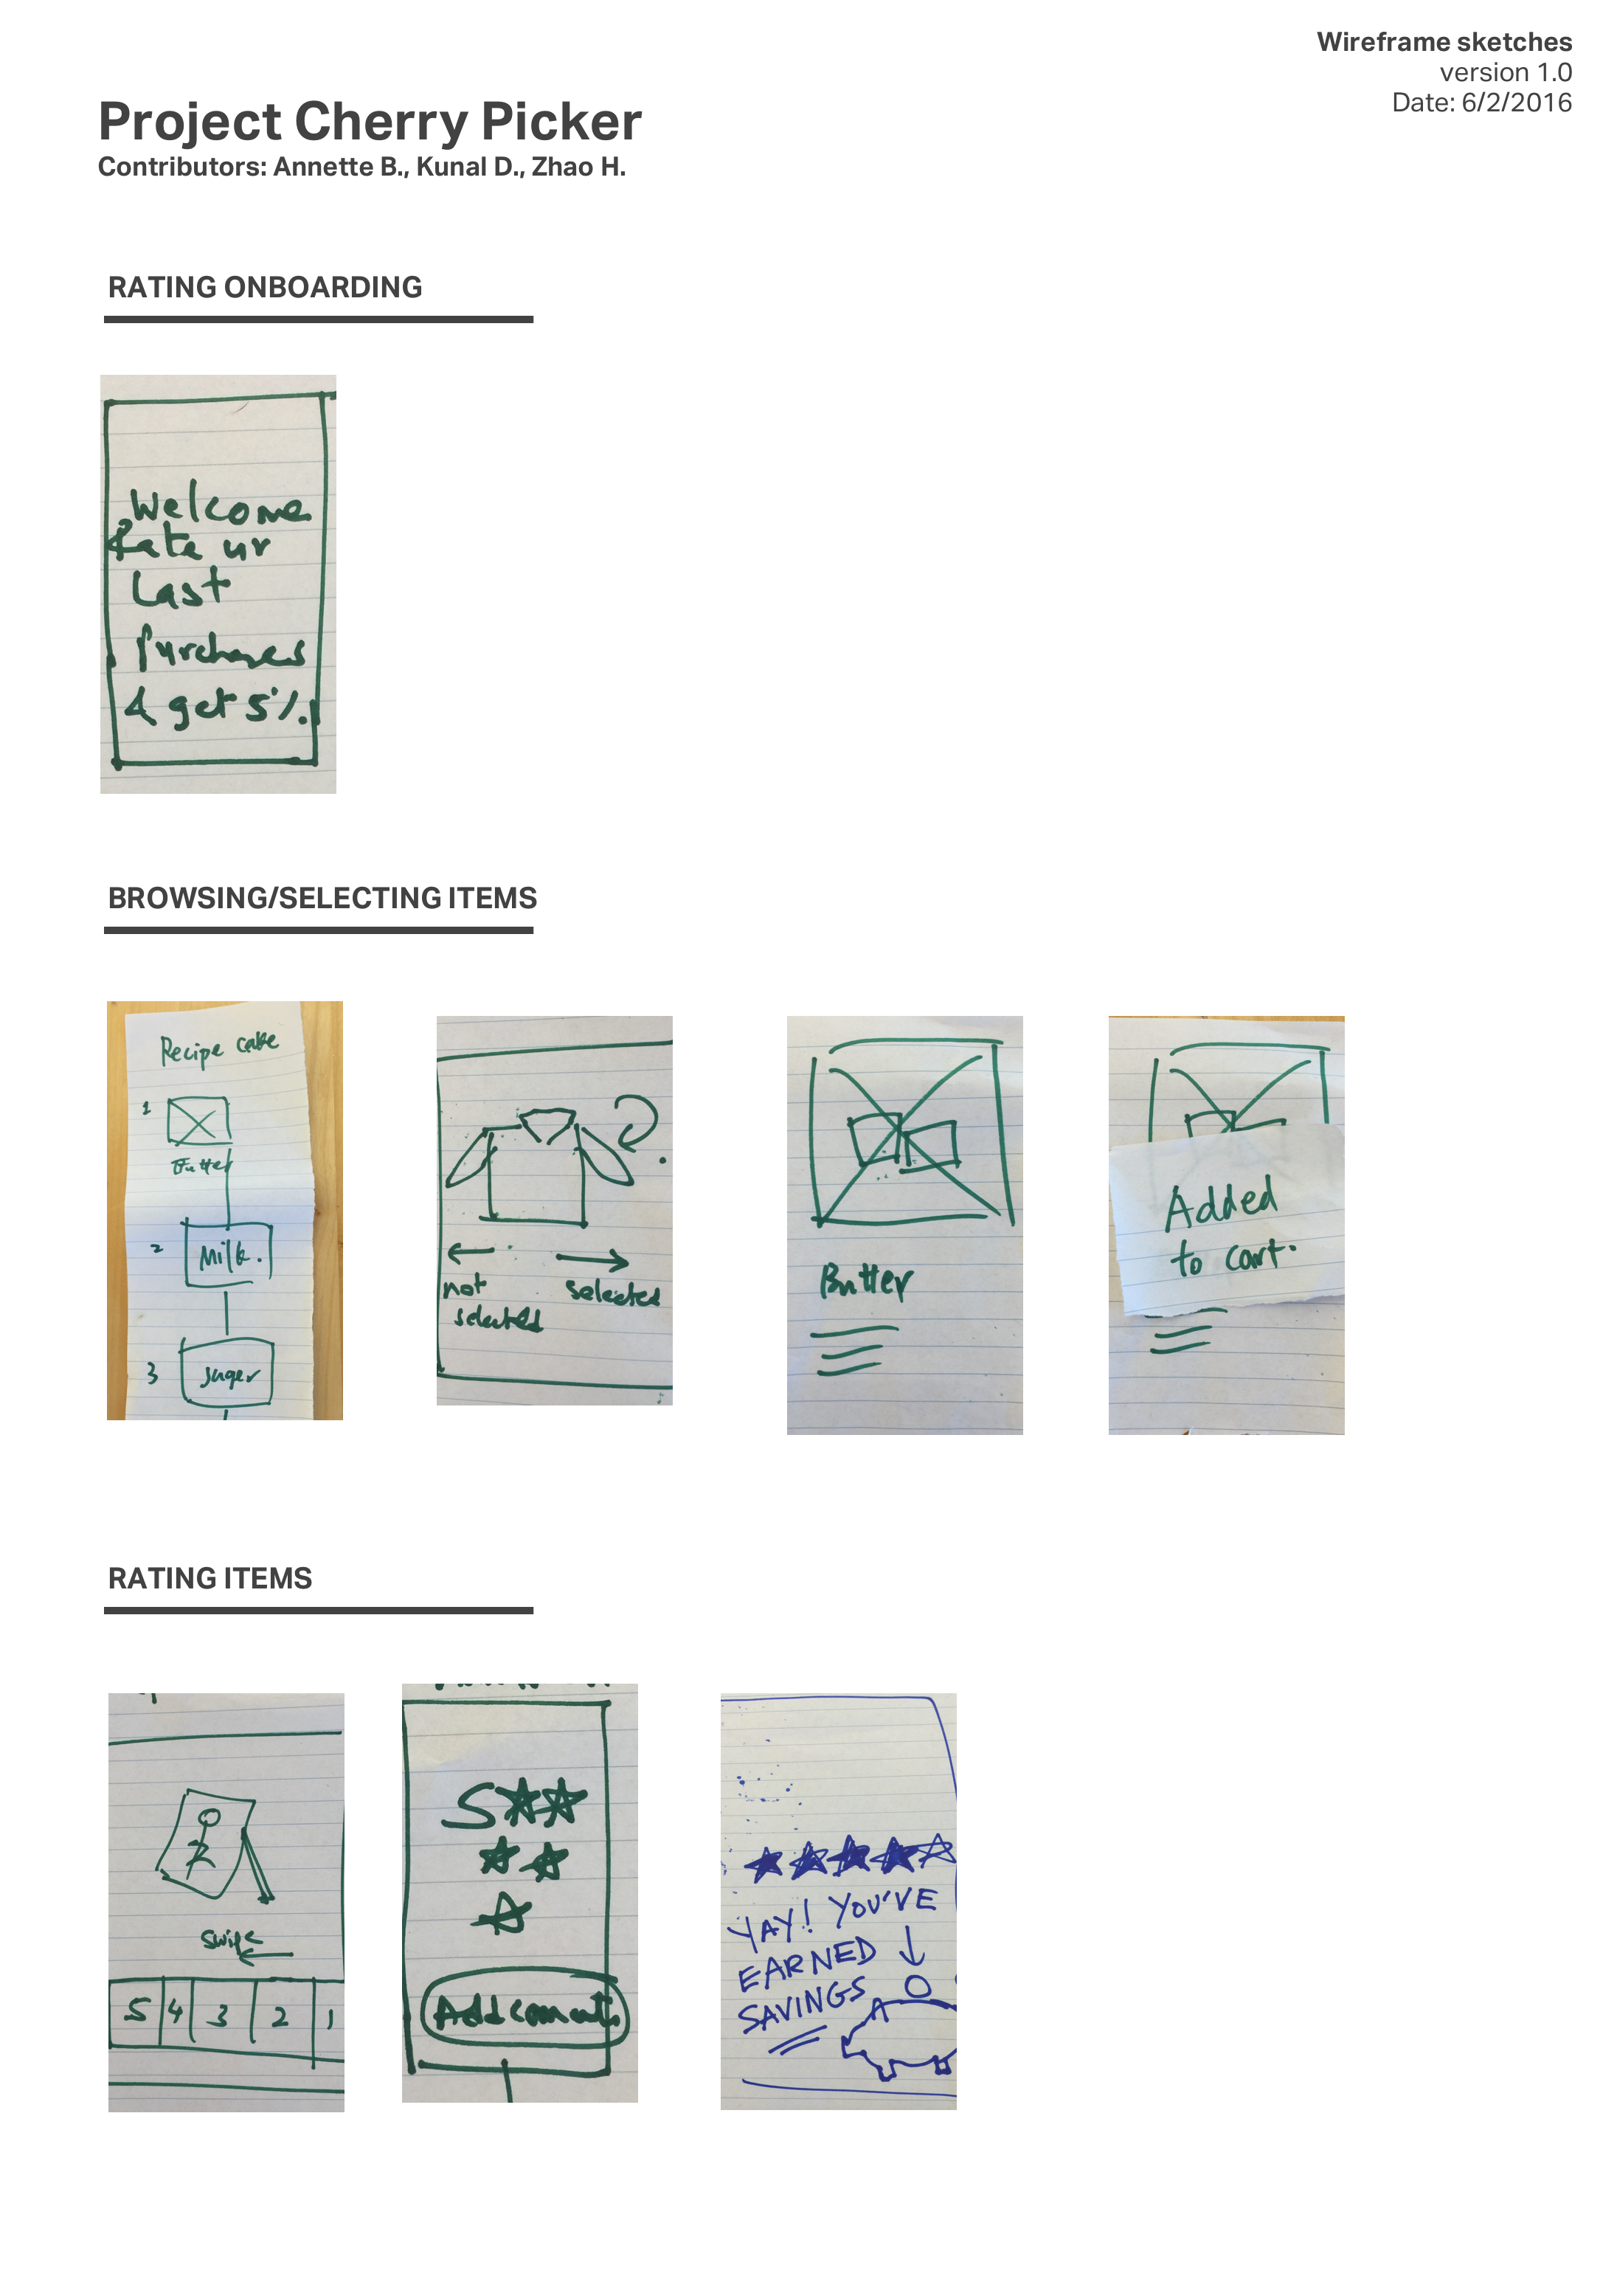 Wireframe sketches
version 1.0
Date: 6/2/2016
Project Cherry Picker
Contributors: Annette B., Kunal D., Zhao H.
RATING ONBOARDING
Welcome
Rate ur
Last
Purchases
& get 5%.
BROWSING/SELECTING ITEMS
Recipe cake
1
Butter
2
Milk.
3
suger
not
selected
selected
Butter
Added
to cart.
RATING ITEMS
swipe
5 4 3 2 1
5
Add coment
YAY! YOU'VE
EARNED
SAVINGS